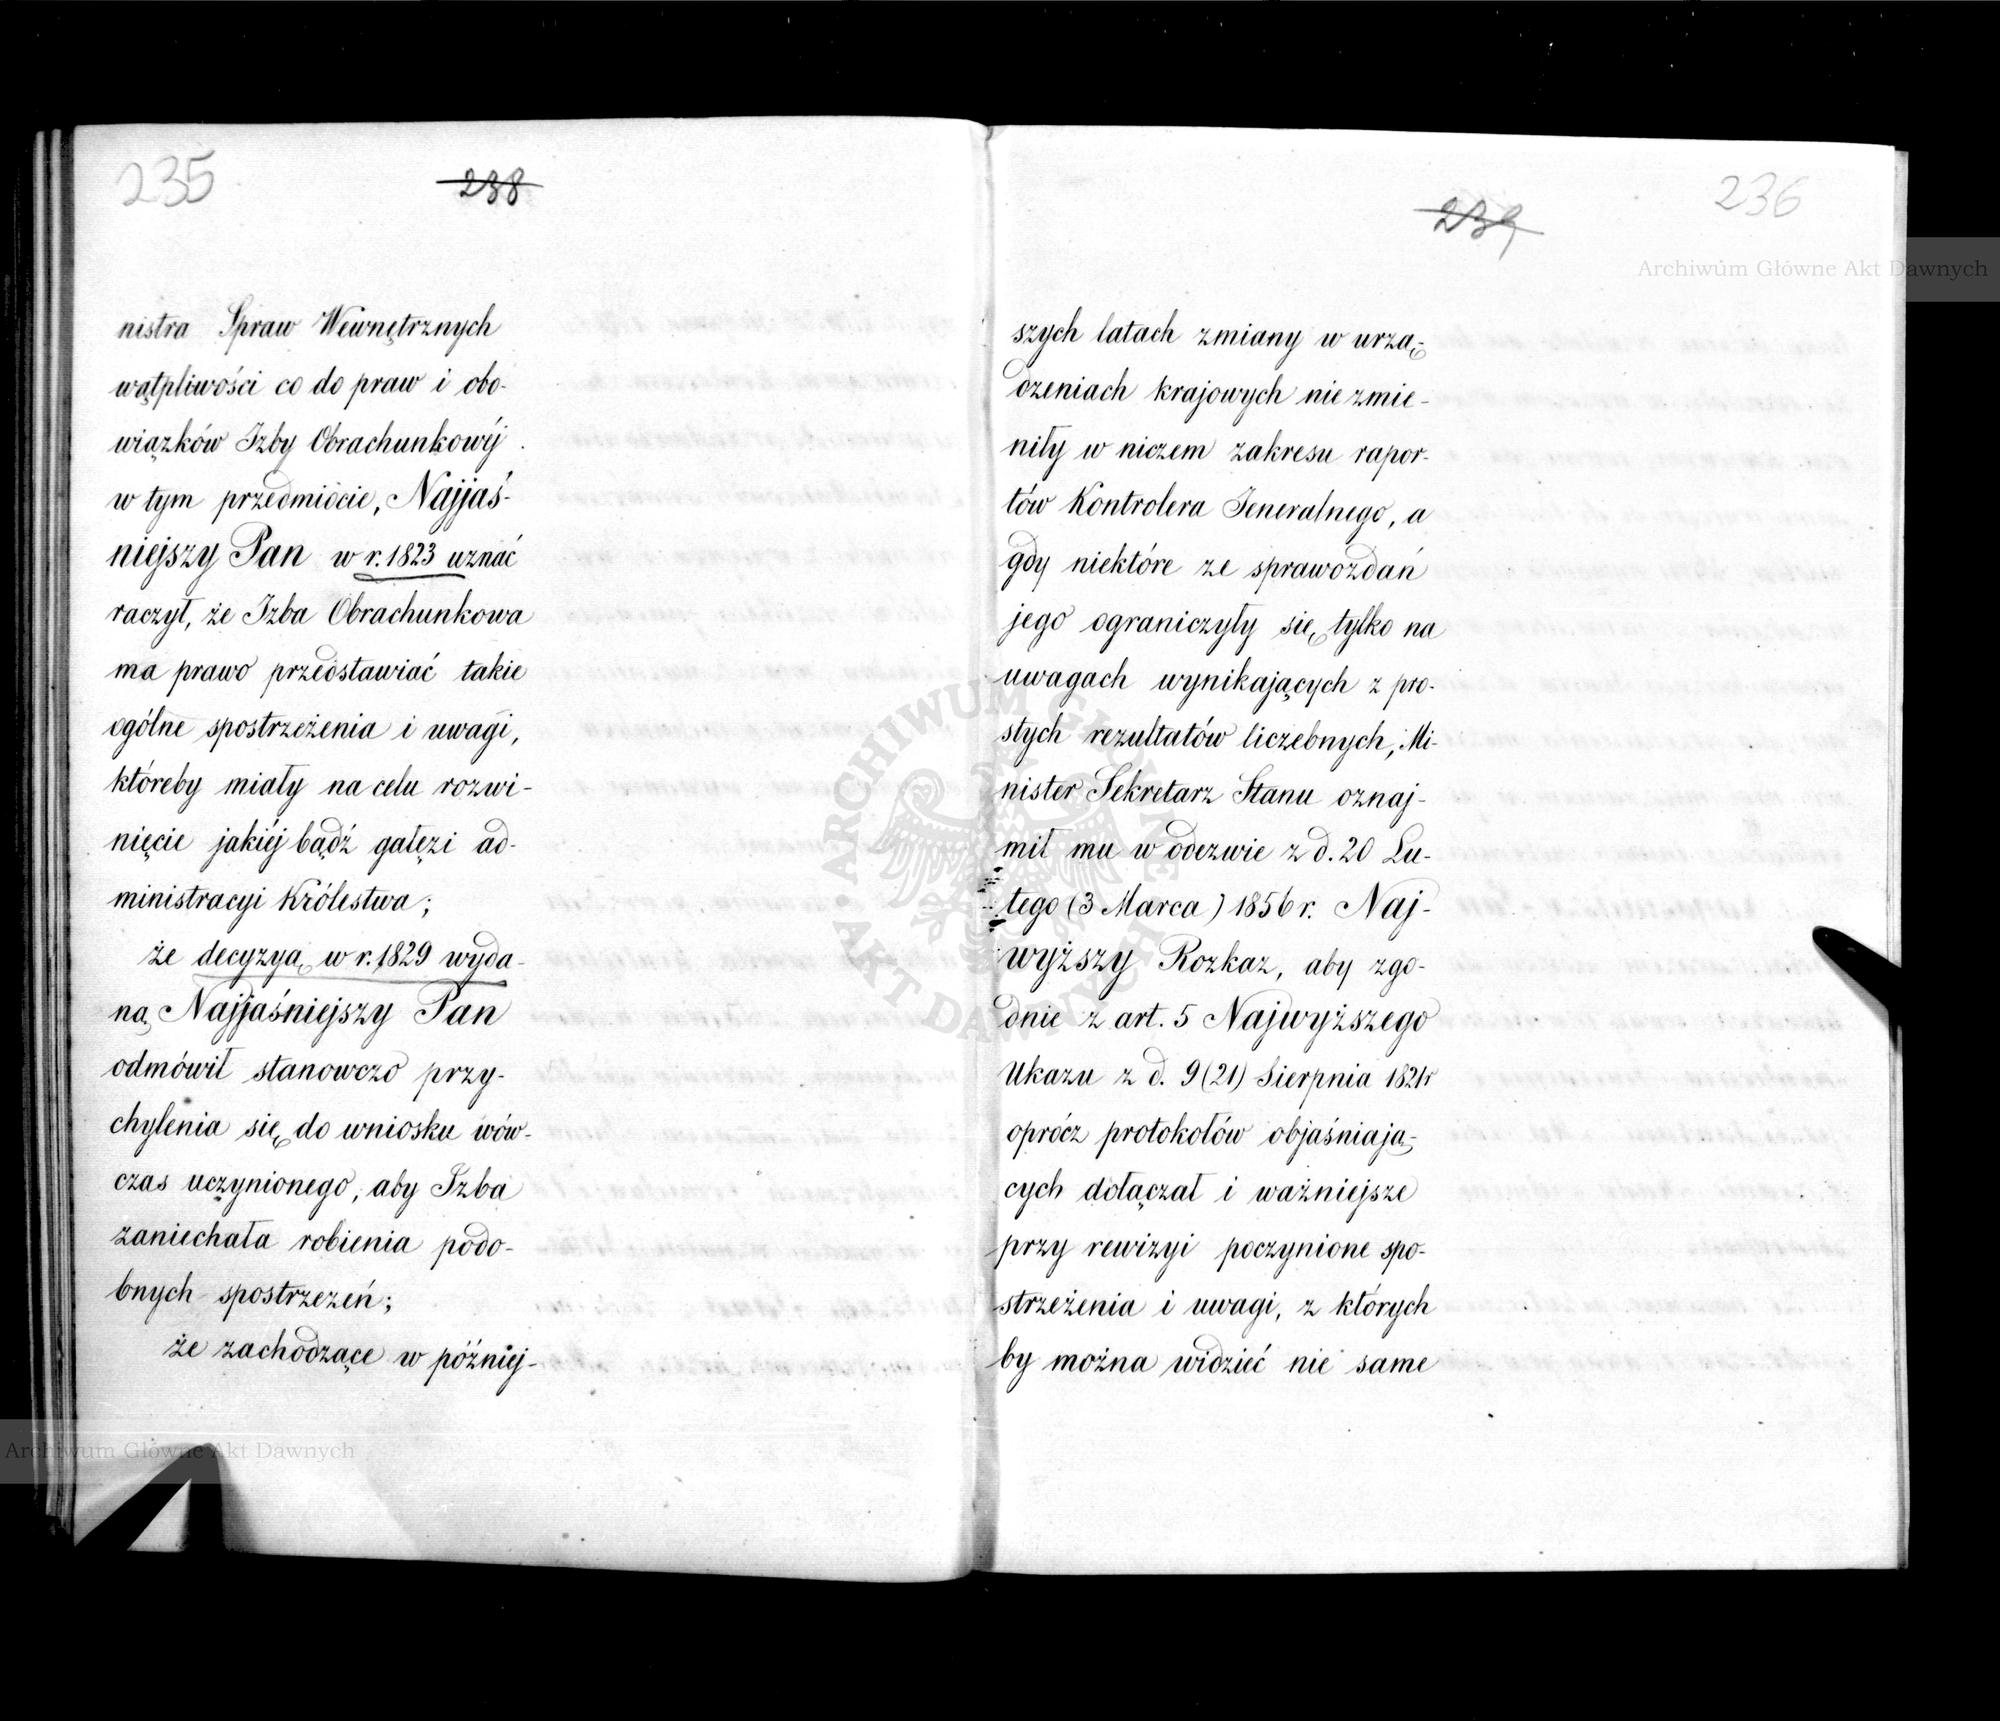 235
238
nistra Spraw Wewnętrznych
wątpliwości co do praw i obo-
wiązków Izby Obrachunkowéj
w tym przedmiocie, Najjaś-
niejszy Pan w r. 1823 uznać
raczył, że Izba Obrachunkowa
ma prawo przedstawiać takie
ogólne spostrzeżenia i uwagi,
któreby miały na celu rozwi-
nięcie jakiéj bądź gałęzi ad-
ministracyi Królestwa;
że decyzyą w r. 1829 wyda-
ną Najjaśniejszy Pan
odmówił stanowczo przy-
chylenia się do wniosku wów-
czas uczynionego, aby Izba
zaniechała robienia podo-
bnych spostrzezeń;
że zachodzące w później-
236
239
szych latach zmiany w urzą-
dzeniach krajowych nie zmie-
niły w niczem zakresu rapor-
tów Kontrolera Jeneralnego, a
gdy niektóre ze sprawozdań
jego ograniczyły się tylko na
uwagach wynikających z pro-
stych rezultatów liczebnych, Mi-
nister Sekretarz Stanu oznaj-
mił mu w odezwie z d. 20 Lu-
tego (3 Marca) 1856 r. Naj-
wyższy Rozkaz, aby zgo-
dnie z art. 5 Najwyższego
Ukazu z d. 9 (21) Sierpnia 1821 r
oprócz protokołów objaśniają-
cych dołączał i ważniejsze
przy rewizyi poczynione spo-
strzeżenia i uwagi, z których
by można widzieć nie same
Archiwum Główne Akt Dawnych
Archiwum Główne Akt Dawnych
ARCHIWUM GŁÓWNE AKT DAWNYCH